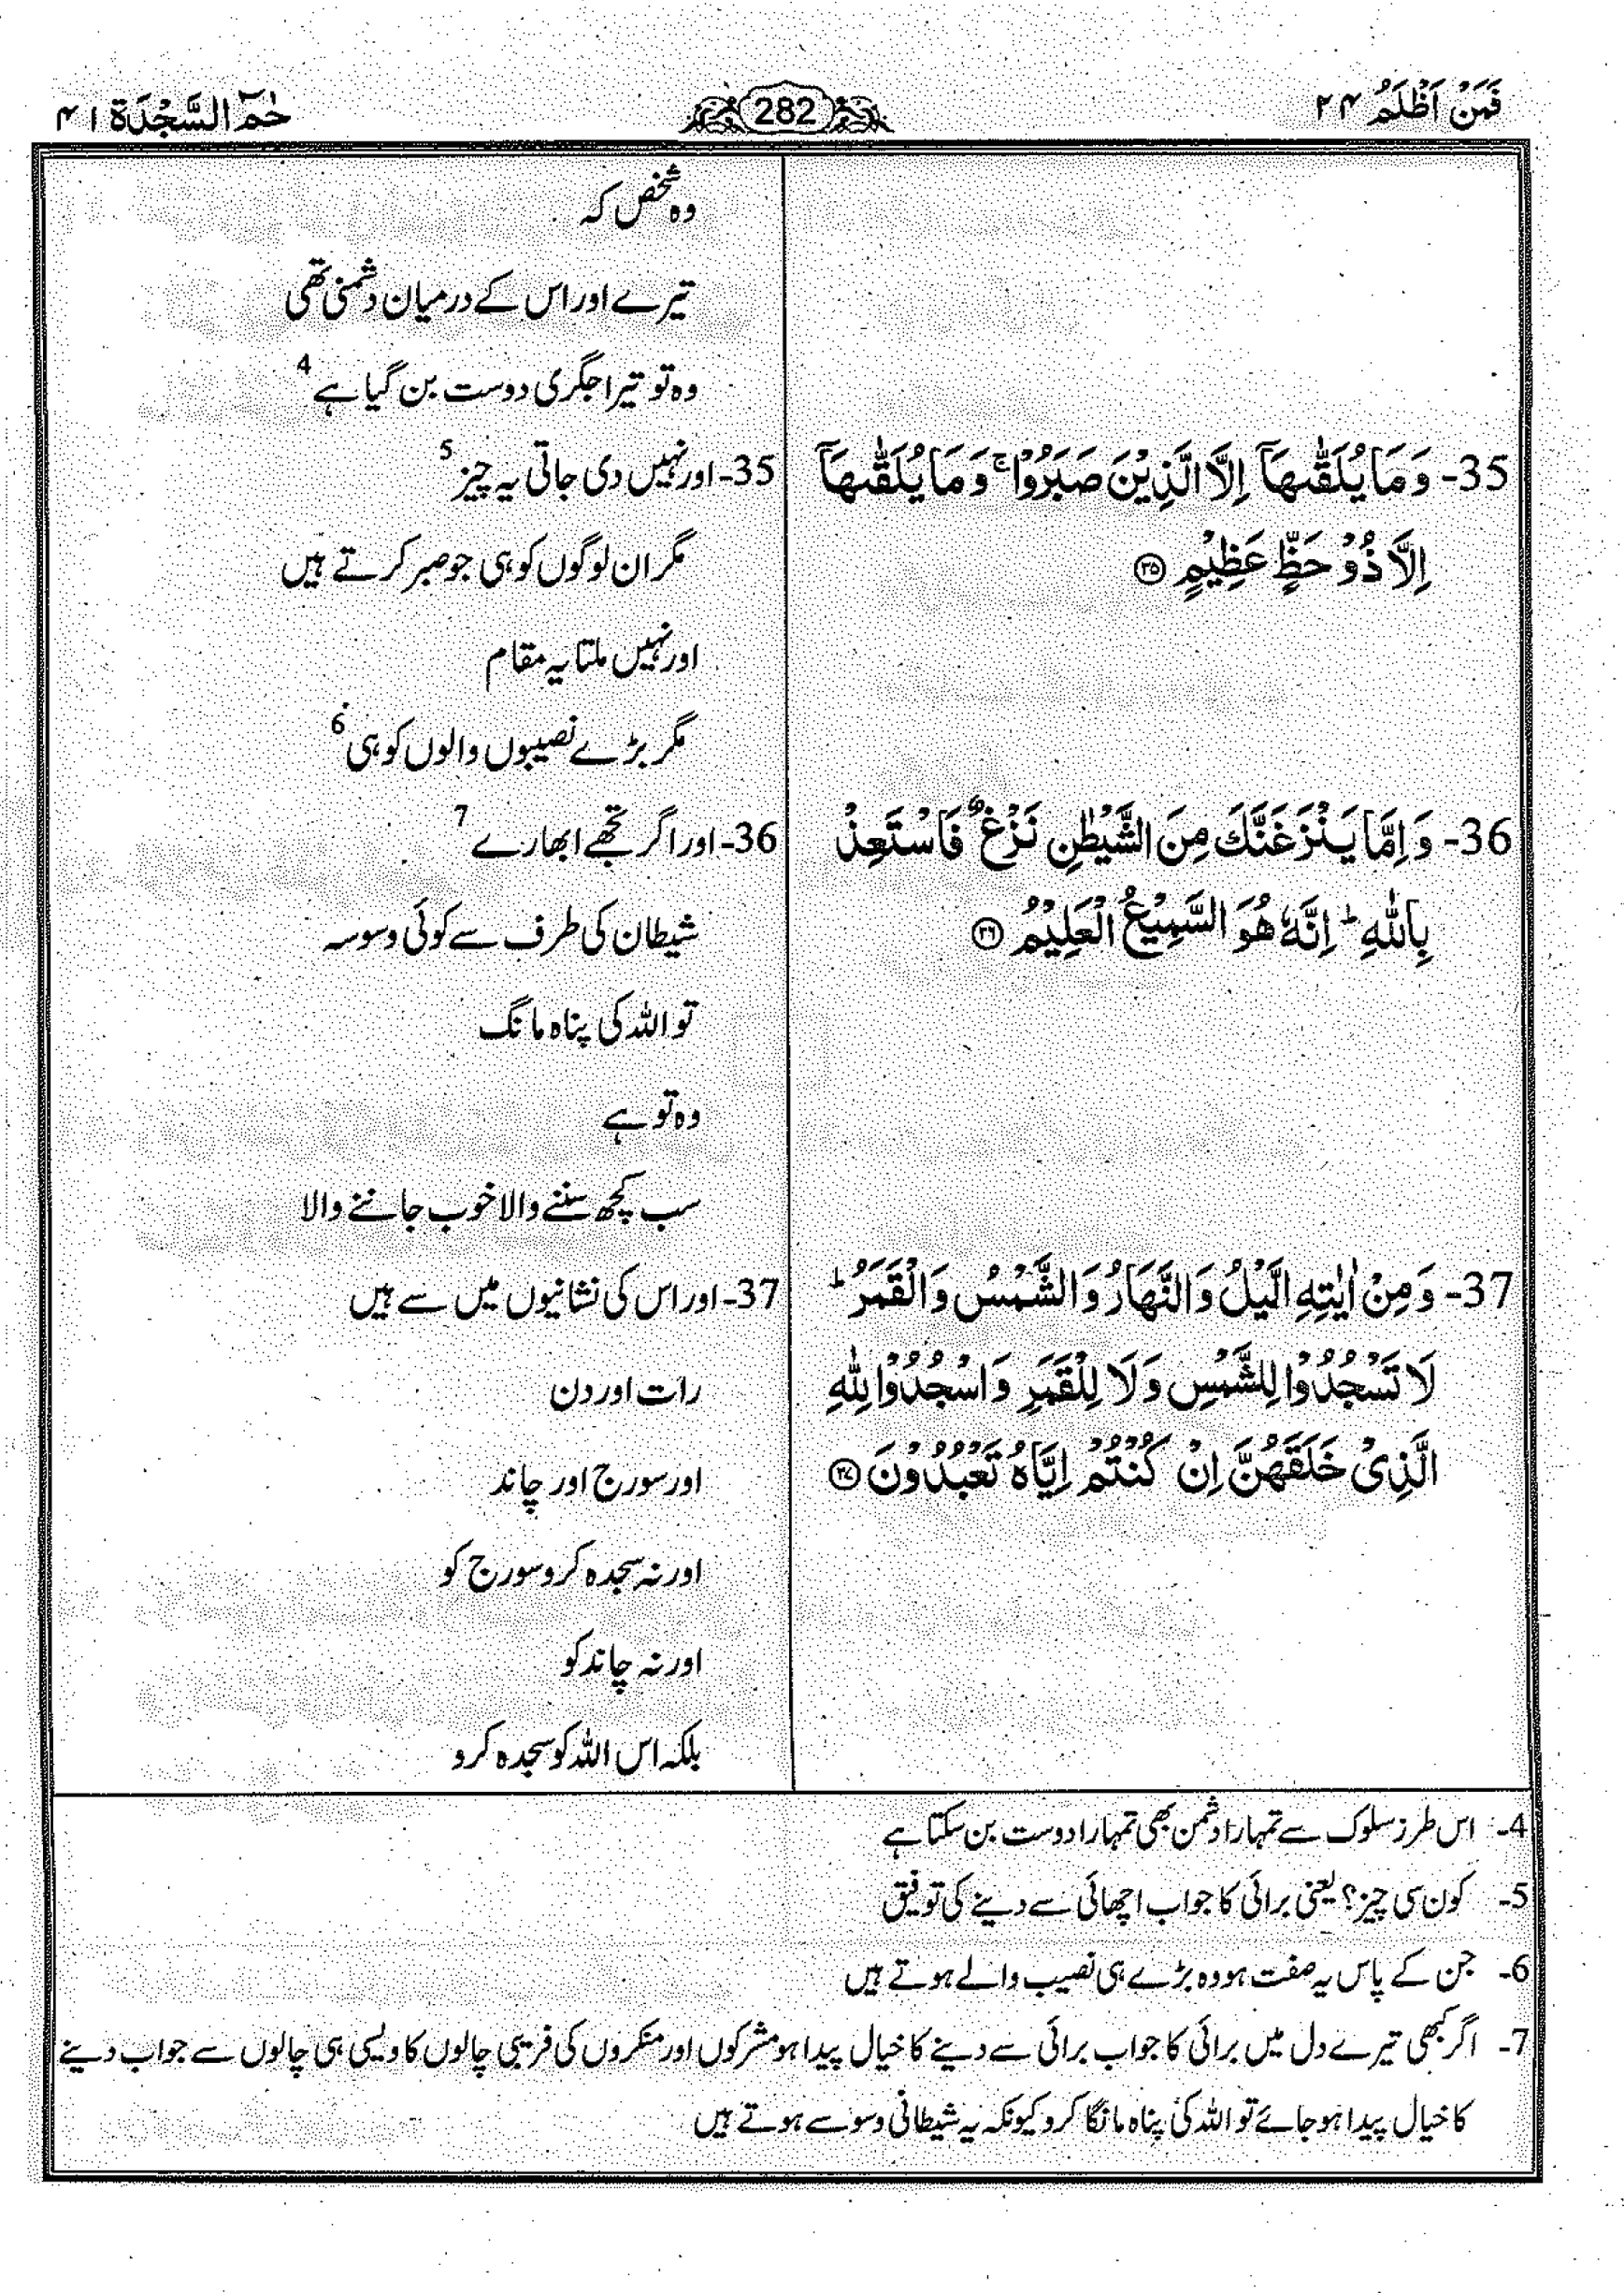 فَمَنْ اَظْلَمُ ۲۴
282
حٰمٓ السَّجْدَة ۴۱
وہ شخص کہ
تیرے اور اس کے درمیان دشمنی تھی
وہ تو تیرا جگری دوست بن گیا ہے 4
35- وَمَا يُلَقّٰىهَاۤ اِلَّا الَّذِيْنَ صَبَرُوْا ۚ وَمَا يُلَقّٰىهَاۤ
اِلَّا ذُوْ حَظٍّ عَظِيْمٍ ۝۳۵
35- اور نہیں دی جاتی یہ چیز 5
مگر ان لوگوں کو ہی جو صبر کرتے ہیں
اور نہیں ملتا یہ مقام
مگر بڑے نصیبوں والوں کو ہی 6
36- وَ اِمَّا يَنْزَغَنَّكَ مِنَ الشَّيْطٰنِ نَزْغٌ فَاسْتَعِذْ
بِاللّٰهِ ؕ اِنَّهٗ هُوَ السَّمِيْعُ الْعَلِيْمُ ۝۳۶
36- اور اگر تجھے ابھارے 7
شیطان کی طرف سے کوئی وسوسہ
تو اللہ کی پناہ مانگ
وہ تو ہے
سب کچھ سننے والا خوب جاننے والا
37- وَ مِنْ اٰيٰتِهِ الَّيْلُ وَ النَّهَارُ وَ الشَّمْسُ وَ الْقَمَرُ ؕ
لَا تَسْجُدُوْا لِلشَّمْسِ وَ لَا لِلْقَمَرِ وَ اسْجُدُوْا لِلّٰهِ
الَّذِيْ خَلَقَهُنَّ اِنْ كُنْتُمْ اِيَّاهُ تَعْبُدُوْنَ ۝۳۷
37- اور اس کی نشانیوں میں سے ہیں
رات اور دن
اور سورج اور چاند
اور نہ سجدہ کرو سورج کو
اور نہ چاند کو
بلکہ اس اللہ کو سجدہ کرو
4- اس طرز سلوک سے تمہارا دشمن بھی تمہارا دوست بن سکتا ہے
5- کون سی چیز؟ یعنی برائی کا جواب اچھائی سے دینے کی توفیق
6- جن کے پاس یہ صفت ہو وہ بڑے ہی نصیب والے ہوتے ہیں
7- اگر کبھی تیرے دل میں برائی کا جواب برائی سے دینے کا خیال پیدا ہو مشرکوں اور منکروں کی فریبی چالوں کا ویسی ہی چالوں سے جواب دینے
کا خیال پیدا ہو جائے تو اللہ کی پناہ مانگا کرو کیونکہ یہ شیطانی وسوسے ہوتے ہیں